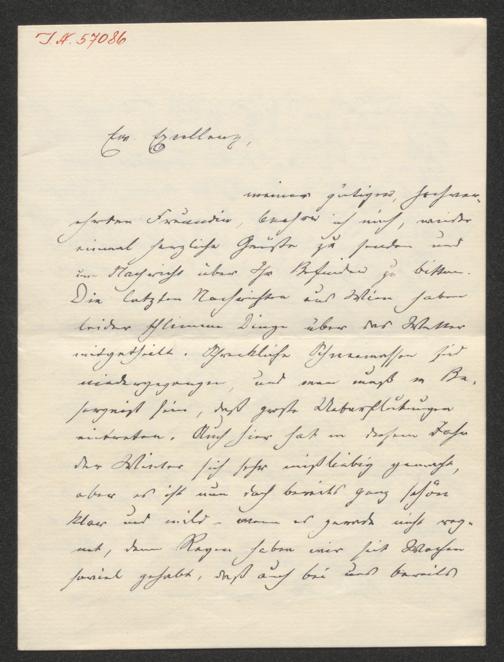 I.N. 57086
Ew. Excellenz,
meiner gütigen, hochver-
ehrten Freundin, beehre ich mich, wieder
einmal herzliche Grüße zu senden und
um Nachricht über Ihr Befinden zu bitten.
Die letzten Nachrichten aus Wien haben
leider schlimme Dinge über das Wetter
mitgetheilt. Schreckliche Schneemassen sind
niedergegangen, und man muß in Be-
sorgniß sein, daß große Ueberflutungen
eintreten. Auch hier hat in diesem Jahr
der Winter sich sehr mißliebig gemacht,
aber es ist nun doch bereits ganz schön
klar und mild - wenn es gerade nicht reg-
net, denn Regen haben wir seit Wochen
soviel gehabt, daß auch bei uns bereits